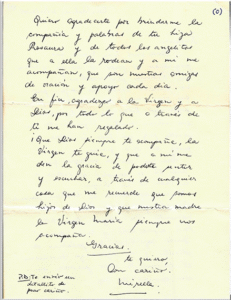 (0)
Quiero agradecerte por brindarme la
compañía y palabras de tu hija
Rosaura y de todos los angelitos
que a ella la rodean y a mi me
acompañan, que son nuestros amigos
de oración y apoyo cada día.
En fin, agradezco a la Virgen y a
Dios, por todo lo que a través de
ti me han regalado.
¡Que Dios siempre te acompañe, la
Virgen te guíe, y que a mi me
den la gracia de poderte
y escuchar, a través de cualquier
cosa que me recuerde que somos
hijos de Dios y que nuestra madre
la Virgen María siempre nos
acompaña.
Gracias.
te quiero,
Con cariño.
Mirella.
P.D: Te envío un
detallito de
puro cariño.